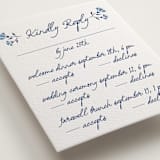 Kindly Reply
by june 20th
welcome dinner september 11th, 6 pm
accepts declines
wedding ceremony september 12, 4 pm
accepts declines
farewell brunch september 13,
accepts